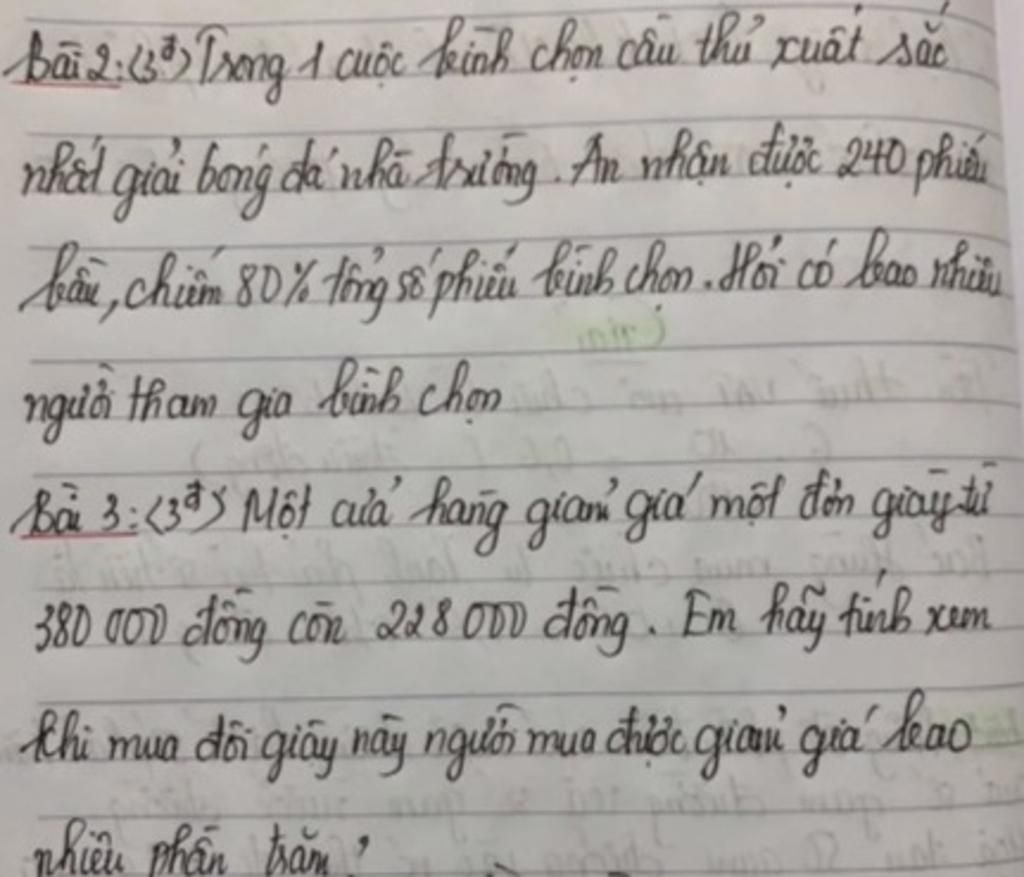 Bài 2: (3đ) Trong 1 cuộc bình chọn cầu thủ xuất sắc
nhất giải bóng đá nhà trường. An nhận được 240 phiếu
bầu, chiếm 80% tổng số phiếu bình chọn. Hỏi có bao nhiêu
người tham gia bình chọn
Bài 3: (3đ) Một cửa hàng giảm giá một đôn giày từ
380 000 đồng còn 228 000 đồng. Em hãy tính xem
khi mua đôi giày này người mua được giảm giá bao
nhiêu phần trăm?